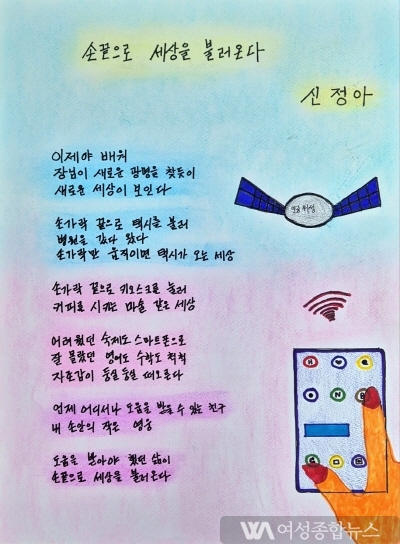 손끝으로 세상을 불러온다
신정아
이제야 배워
장님이 새로운 광명을 찾듯이
새로운 세상이 보인다
손가락 끝으로 택시를 불러
병원을 갔다 왔다
손가락만 움직이면 택시가 오는 세상
손가락 끝으로 키오스크를 눌러
커피를 시키는 마술 같은 세상
어려웠던 숙제도 스마트폰으로
잘 몰랐던 영어도 수학도 척척
자존감이 둥실둥실 떠오른다
언제 어디서나 도움을 받을 수 있는 친구
내 손안의 작은 영웅
도움을 받아야 했던 삶이
손끝으로 세상을 불러온다
인공위성
WA 여성종합뉴스